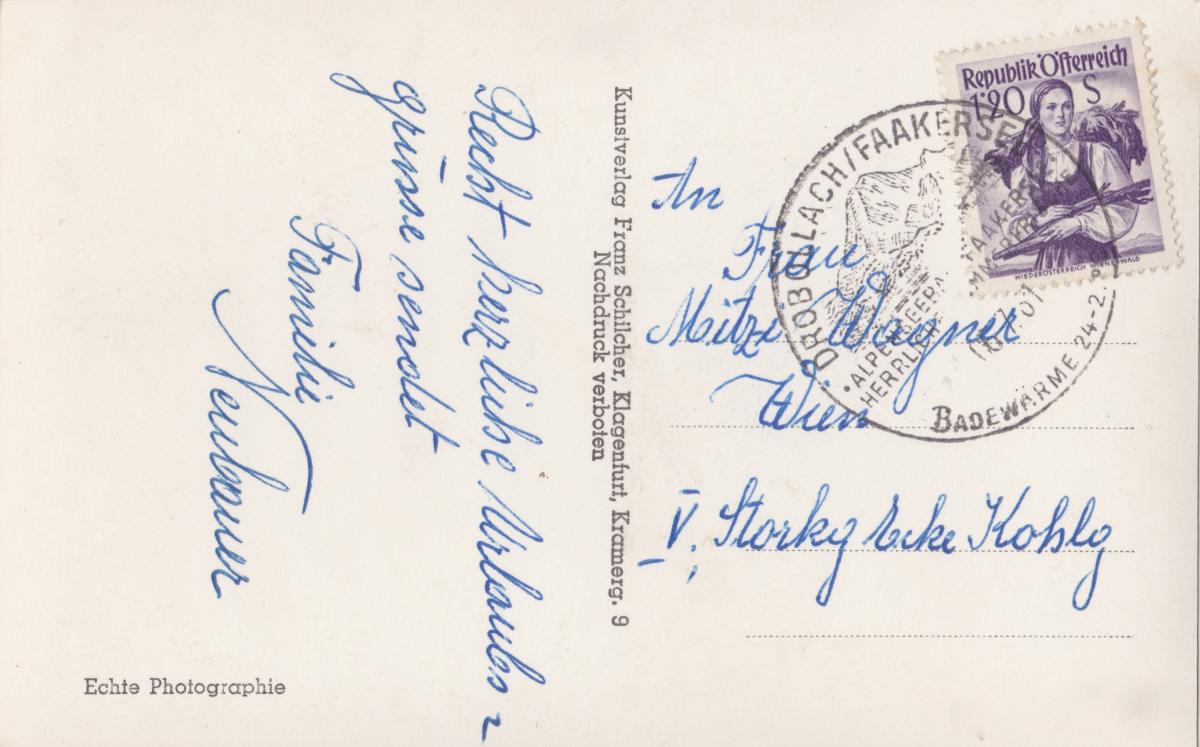 Recht herzliche Urlaubs-
grüsse sendet
Familie
Neubauer
Echte Photographie
Kunstverlag Franz Schilcher, Klagenfurt, Kramerg. 9
Nachdruck verboten
An
Frau
Mitzi Wagner
Wien
V. Storkg Ecke Kohlg
Republik Österreich
1·20 S
NIEDERÖSTERREICH WIENERWALD
DROBOLLACH/FAAKERSEE
BADEWÄRME 24-2